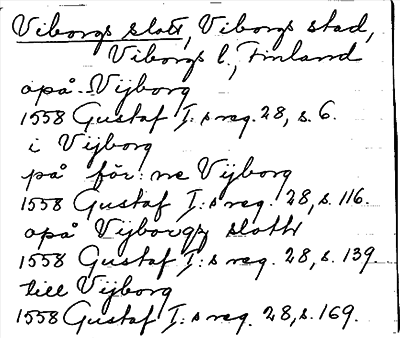 Viborgs slott, Viborgs stad,
Viborgs l., Finland
opå Vijborg
1558 Gustaf I:s reg. 28, s. 6.
i Vijborg
på för:ne Vijborg
1558 Gustaf I:s reg. 28, s. 116.
opå Vijborgz slott
1558 Gustaf I:s reg. 28, s. 139.
till Vijborg
1558 Gustaf I:s reg. 28, s. 169.